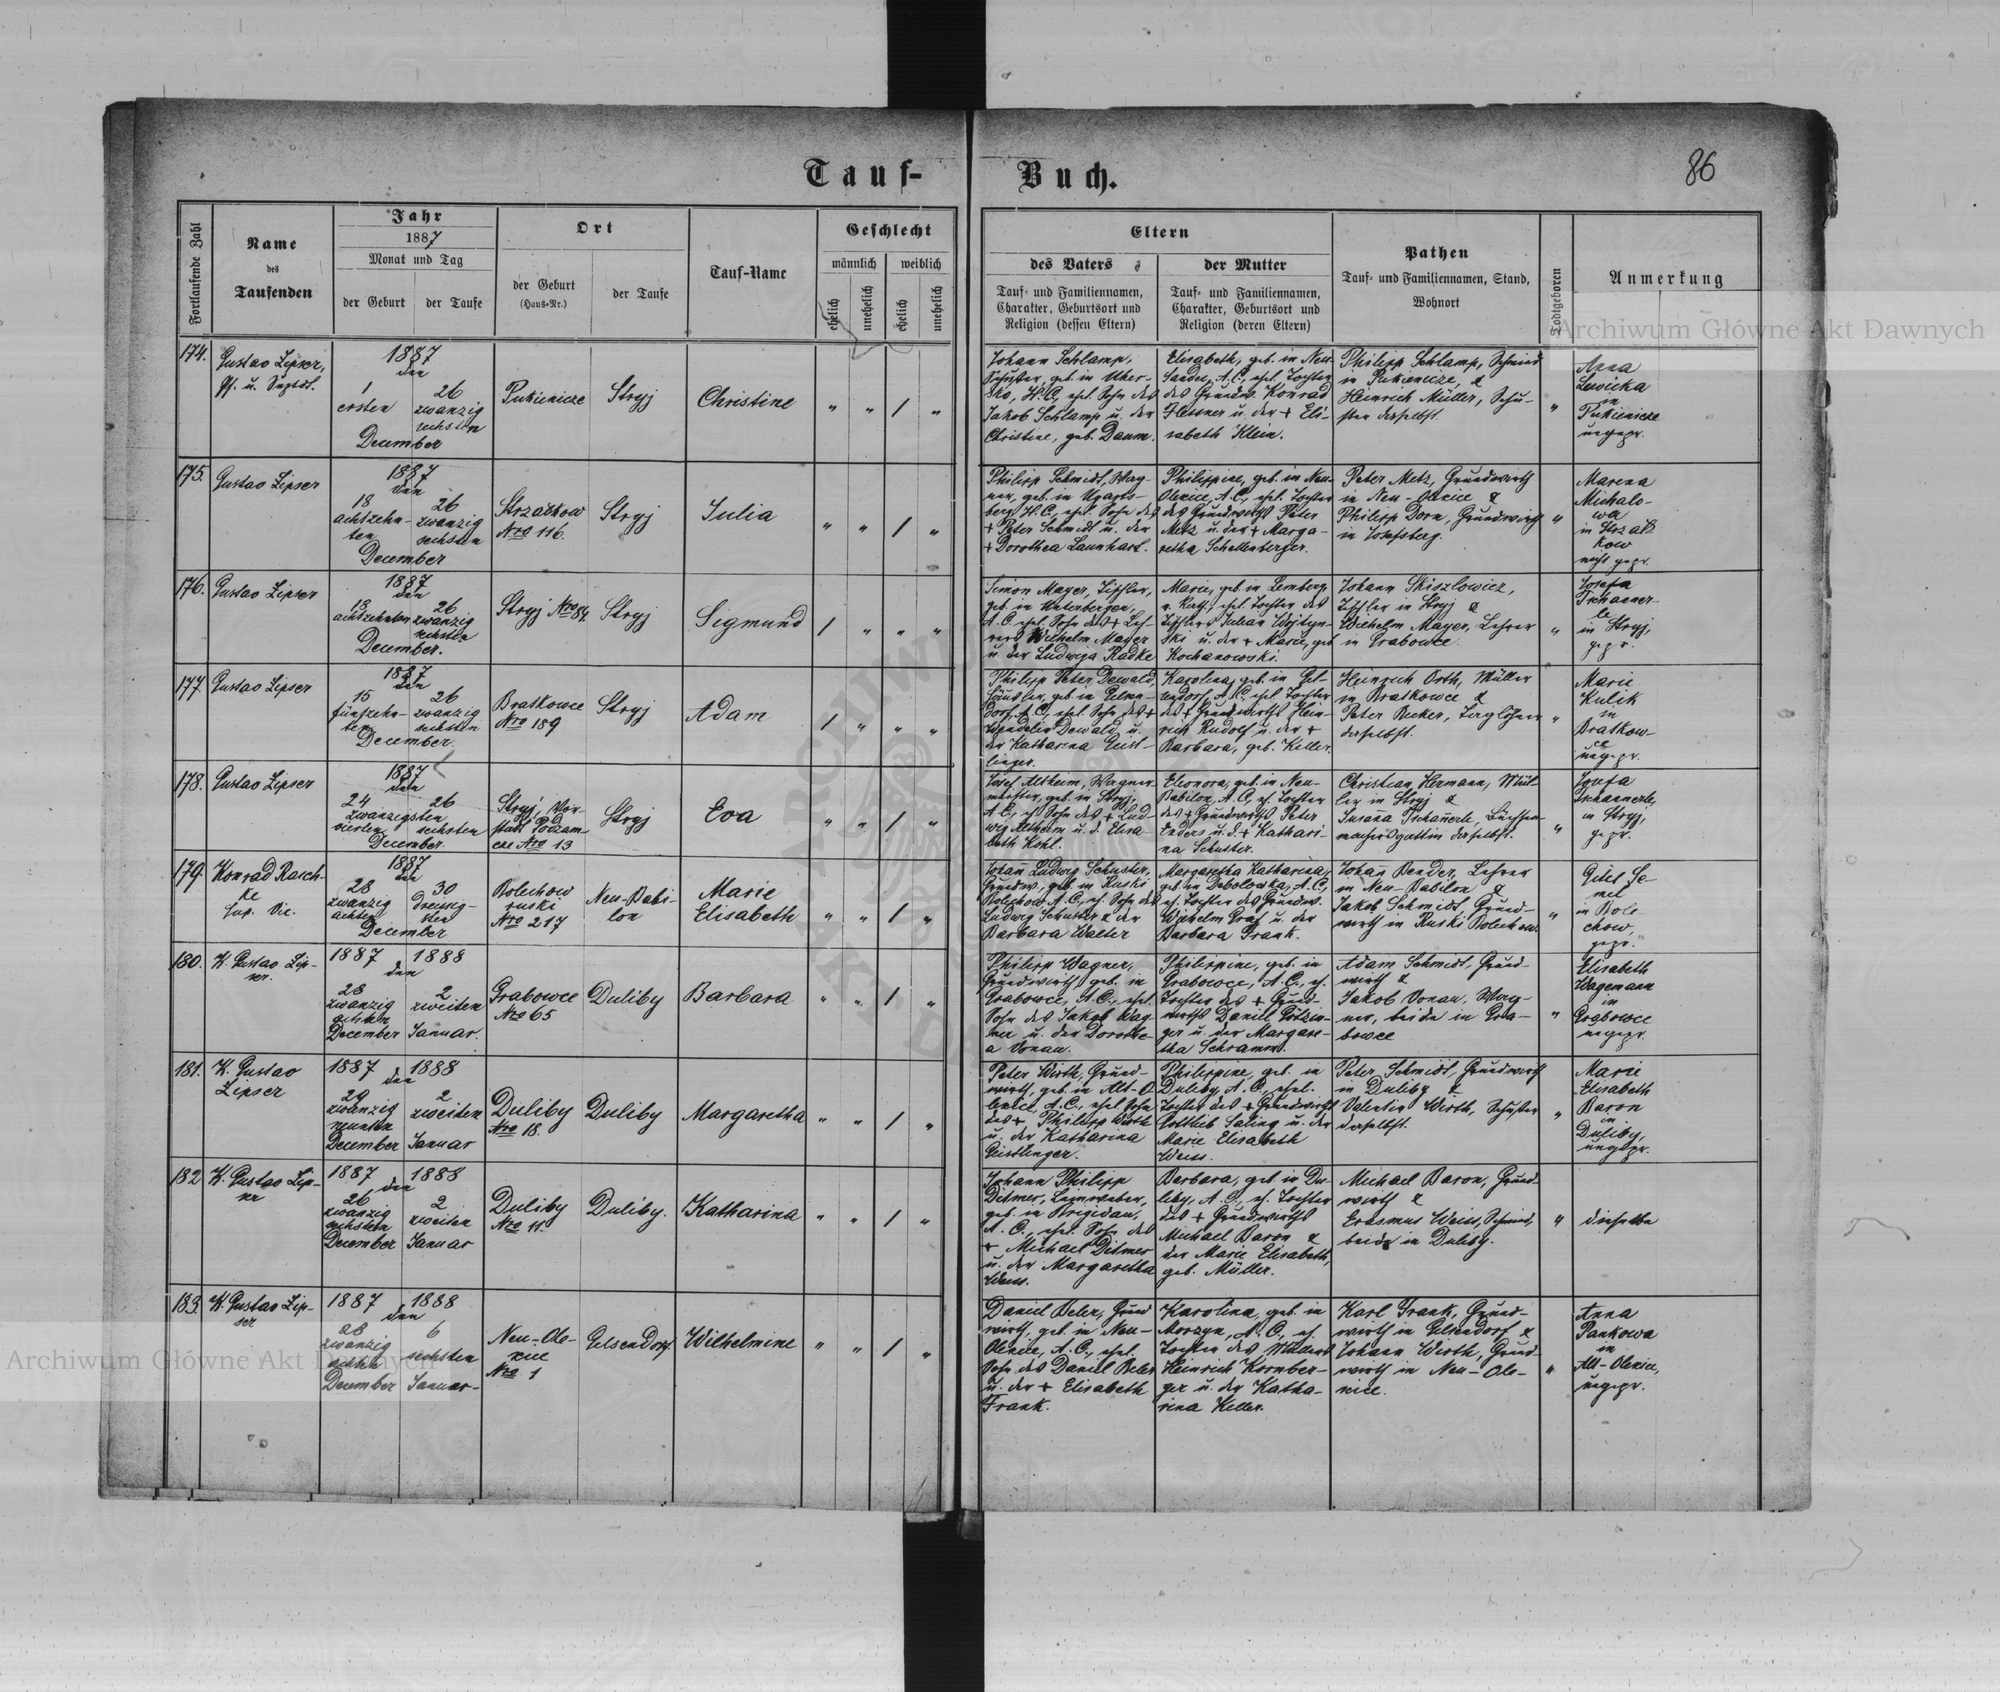 Tauf-
Buch.
86
Fortlaufende Zahl
Name
des
Taufenden
Jahr
1887
Monat und Tag
der Geburt
der Taufe
Ort
der Geburt
(Haus-Nr.)
der Taufe
Tauf-Name
Geschlecht
männlich
weiblich
ehelich
unehelich
ehelich
unehelich
Eltern
des Vaters
der Mutter
Tauf- und Familiennamen,
Charakter, Geburtsort und
Religion (dessen Eltern)
Tauf- und Familiennamen,
Charakter, Geburtsort und
Religion (deren Eltern)
Pathen
Tauf- und Familiennamen, Stand,
Wohnort
Todtgeboren
Anmerkung
Archiwum Główne Akt Dawnych
174.
Gustav Lipser,
1887
den
1
ersten
26
zwanzig
sechsten
December
Pukienicze
Stryj
Christine
" " / "
Johann Schlamp,
Schuster, geb. in Uher-
sko, H.C., ehel. Sohn des
Jakob Schlamp u. der
Christine, geb. Daum.
Elisabeth, geb. in Neu-
Sandez, A.C., ehel. Tochter
des Grundw. Konrad
Flessner u. der + Eli-
sabeth Klein.
Philipp Schlamp, Schmied
in Pukienicze, &
Heinrich Müller, Schu-
ster daselbst.
"
Anna
Lewicka
in
Pukienicze
ungepr.
175.
Gustav Lipser
1887
den
18
achtzehn-
ten
26
zwanzig
sechsten
December
Strzałkow
Nro 116.
Stryj
Julia
" " / "
Philipp Schmidt, Wag-
ner, geb. in Ugarts-
berg, H.C., ehel. Sohn des
+ Peter Schmidt u. der
+ Dorothea Launhart.
Philippine, geb. in Neu-
Olexice, A.C., ehel. Tochter
des Grundwirths Peter
Metz u. der + Marga-
retha Schellenberger.
Peter Metz, Grundwirth
in Neu-Olexice &
Philipp Dorn, Grundwirth
in Josefsberg.
"
Marena
Michalo-
wa
in Strzał-
kow
nicht gepr.
176.
Gustav Lipser
1887
den
18
achtzehnten
26
zwanzig
sechsten
December.
Stryj Nro 84.
Stryj
Sigmund
/ " " "
Simon Mayer, Tischler,
geb. in Unterbergen,
A.C., ehel. Sohn des + Leh-
rers Wilhelm Mayer
u. der Ludwiga Radke
Marie, geb. in Lemberg,
r. kath., ehel. Tochter des
Tischlers Julian Wojtyn-
ski u. der + Marie, geb
Kochanowski.
Johann Skiszlowicz,
Tischler in Stryj &
Wilhelm Mayer, Lehrer
in Grabowce.
"
Josefa
Tschanner-
le
in Stryj,
gepr.
177.
Gustav Lipser
1887
den
15
fünfzehn-
ten
26
zwanzig
sechsten
December.
Bratkowce
Nro 189
Stryj
Adam
/ " " "
Philipp Peter Dewald,
Häusler, geb. in Gelsen-
dorf, A.C., ehel. Sohn des +
Wendelin Dewald u.
der Katharina Geist-
linger.
Karolina, geb. in Gel-
sendorf, A.C., ehel. Tochter
des + Grundwirths Hein-
rich Rudolf u. der +
Barbara, geb. Keller.
Heinrich Orth, Müller
in Bratkowce &
Peter Becker, Taglöhner
daselbst.
"
Marie
Kulik
in
Bratkow-
ce
ungepr.
178.
Gustav Lipser
1887
den
24
26
zwanzigsten
vierten
sechsten
December.
Stryj, Vor-
stadt Podzam-
cze Nro 13
Stryj
Eva
" " / "
Josef Altheim, Wagner-
meister, geb. in Stryj,
A.C., eh. Sohn des + Lud-
wig Altheim u. d. Elisa-
beth Kohl.
Eleonora, geb. in Neu-
Babilon, A.C., eh. Tochter
des + Grundwirths Peter
Enders u. d. + Kathari-
na Schuster.
Christian Hermann, Mül-
ler in Stryj &
Susana Tschannerle, Büchsen-
machersgattin daselbst.
"
Josefa
Tschannerle,
in Stryj,
gepr.
179.
Konrad Rasch-
ke
Sup. Vic.
1887
den
28
zwanzig
achten
30
dreissig-
sten
December
Bolechow
ruski
Nro 217
Neu-Babi-
lon
Marie
Elisabeth
" " / "
Johann Ludwig Schuster,
Grundw., geb. in Ruski
Bolechow, A.C., eh. Sohn des
Ludwig Schuster & der
Barbara Walter
Margaretha Katharina,
geb. in Debolowka, A.C.,
eh. Tochter des Grundw.
Wilhelm Graf u. der
Barbara Frank.
Johann Bender, Lehrer
in Neu-Babilon &
Jakob Schmidt, Grund-
wirth in Ruski Bolechow.
"
Gitel Se-
mel
in Bole-
chow,
gepr.
180.
K. Gustav Lip-
ser.
1887 1888
den
28
zwanzig
achten
December
2
zweiten
Januar.
Grabowce
Nro 65
Duliby
Barbara
" " / "
Philipp Wagner,
Grundwirth, geb. in
Grabowce, A.C., ehel.
Sohn des Jakob Wag-
ner u. der Dorothe-
a Vonau.
Philippine, geb. in
Grabowce, A.C., eh.
Tochter des + Grund-
wirths Daniel Götzin-
ger u. der Margare-
tha Schramm.
Adam Schmidt, Grund-
wirth &
Jakob Vonau, Wag-
ner, beide in Gra-
bowce
"
Elisabeth
Wagemann
in
Grabowce
ungepr.
181.
K. Gustav
Lipser
1887 1888
den
29
zwanzig
neunten
December
2
zweiten
Januar
Duliby
Nro 18.
Duliby
Margaretha
" " / "
Peter Wirth, Grund-
wirth, geb. in Alt-O-
lexice, A.C., ehel. Sohn
des + Philipp Wirth
u. der Katharina
Geistlinger.
Philippine, geb. in
Duliby, A.C., ehel.
Tochter des + Grundwirths
Gottlieb Saling u. der
Marie Elisabeth
Weiss.
Peter Schmidt, Grundwirth
in Duliby &
Valentin Wirth, Schuster
daselbst.
"
Marie
Elisabeth
Baron
in
Duliby,
ungepr.
182
K. Gustav Lip-
ser
1887 1888
den
26
zwanzig
sechsten
December
2
zweiten
Januar
Duliby
Nro 11.
Duliby.
Katharina
" " / "
Johann Philipp
Ditmer, Leinweber,
geb. in Brigidau,
A.C., ehel. Sohn des
+ Michael Ditmer
u. der Margaretha
Weiss.
Barbara, geb. in Du-
liby, A.C., eh. Tochter
des + Grundwirths
Michael Baron &
der Marie Elisabeth,
geb. Müller.
Michael Baron, Grund-
wirth &
Erasmus Weiss, Schmied,
beide in Duliby.
"
dieselbe
183.
K. Gustav Lip-
ser
1887 1888
den
28
zwanzig
achten
December
6
sechsten
Januar
Neu-Ole-
xice
Nro 1
Gelsendorf.
Wilhelmine
" " / "
Daniel Beler, Grund-
wirth, geb. in Neu-
Olexice, A.C., ehel.
Sohn des Daniel Beler
u. der + Elisabeth
Frank.
Karolina, geb. in
Morszyn, A.C., eh.
Tochter des Müllers
Heinrich Kornber-
ger u. der Katha-
rina Keller.
Karl Frank, Grund-
wirth in Gelsendorf &
Johann Wirth, Grund-
wirth in Neu-Ole-
xice.
"
Anna
Pankowa
in
Alt-Olexice,
ungepr.
Archiwum Główne Akt Dawnych